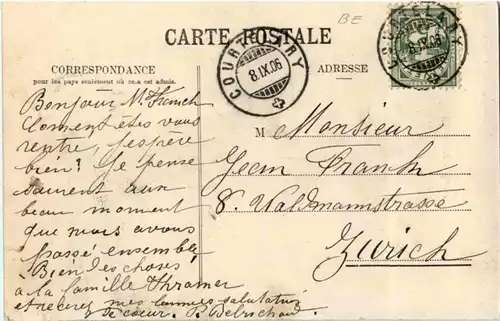 BE
CARTE POSTALE
COURTELARY
8.IX.06
COURTELARY
8.IX.06
CORRESPONDANCE
pour les pays seulement où ce.a est admis.
ADRESSE
Bonjour M.
Coment êtes vous
rentre, j'espère
bien? Je pense
souvent aux
beau moment
que nous avons
passé ensemble
Bien des choses
a la famille
et recevez mes bonnes salutation
de cœur. P.
M Monsieur
Jean Franck
8. Waldmannstrasse
Zurich